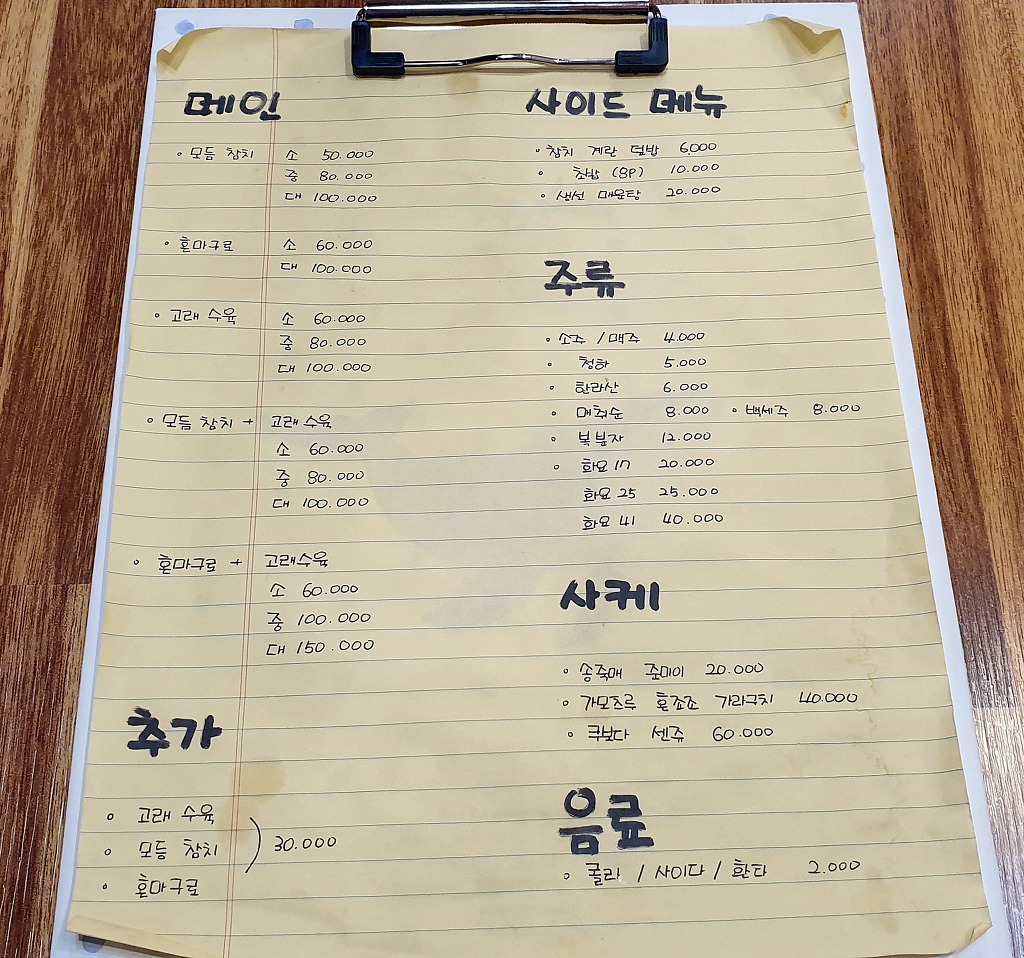 메인
• 모듬 참치 소 50.000
중 80.000
대 100.000
• 혼마구로 소 60.000
대 100.000
• 고래 수육 소 60.000
중 80.000
대 100.000
• 모듬 참치 + 고래 수육
소 60.000
중 80.000
대 100.000
• 혼마구로 + 고래수육
소 60.000
중 100.000
대 150.000
추가
• 고래 수육
• 모듬 참치 ) 30.000
• 혼마구로
사이드 메뉴
• 참치 계란 덮밥 6.000
• 초밥 (8P) 10.000
• 생선 매운탕 20.000
주류
• 소주 / 맥주 4.000
• 청하 5.000
• 한라산 6.000
• 매취순 8.000 • 백세주 8.000
• 복분자 12.000
• 화요 17 20.000
화요 25 25.000
화요 41 40.000
사케
• 송죽매 준마이 20.000
• 가모츠루 혼죠조 가라구치 40.000
• 쿠보다 센쥬 60.000
음료
• 콜라 / 사이다 / 환타 2.000